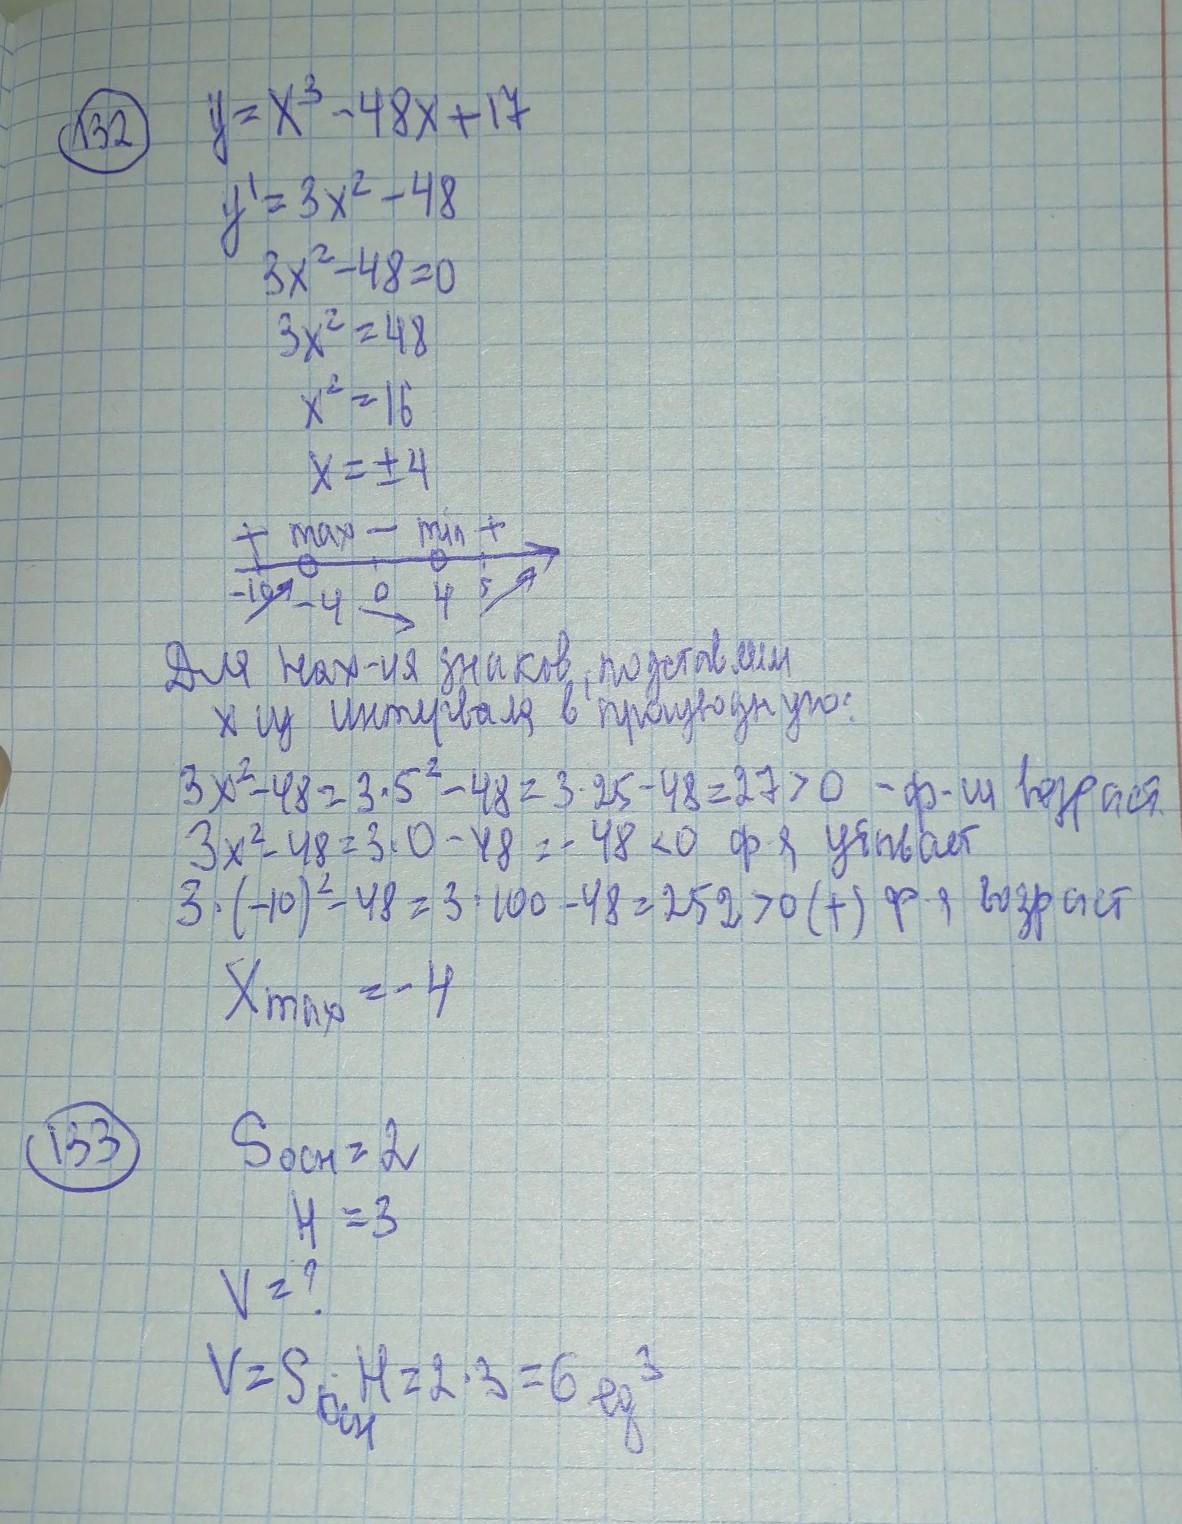 132 y = x³ - 48x + 17
y' = 3x² - 48
3x² - 48 = 0
3x² = 48
x² = 16
x = ±4
+ max - min +
-10 -4 0 4 5
Для нах-ия знаков, подставим
x из интервала в производную:
3x² - 48 = 3·5² - 48 = 3·25 - 48 = 27 > 0 - ф-ия возраст.
3x² - 48 = 3·0 - 48 = -48 < 0 ф-я убывает
3·(-10)² - 48 = 3·100 - 48 = 252 > 0 (+) ф-я возраст
Xmax = -4
133 Sосн = 2
H = 3
V = ?
V = Sосн·H = 2·3 = 6 ед³